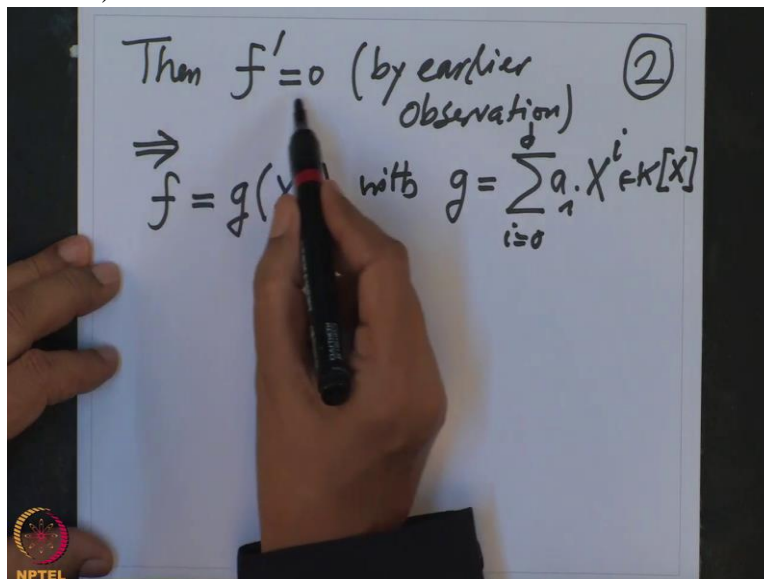 Then f' = 0 (by earlier ②
observation)
⇒
f = g(X with g = d∑i=0 aᵢ Xⁱ ∈ K[X]
NPTEL